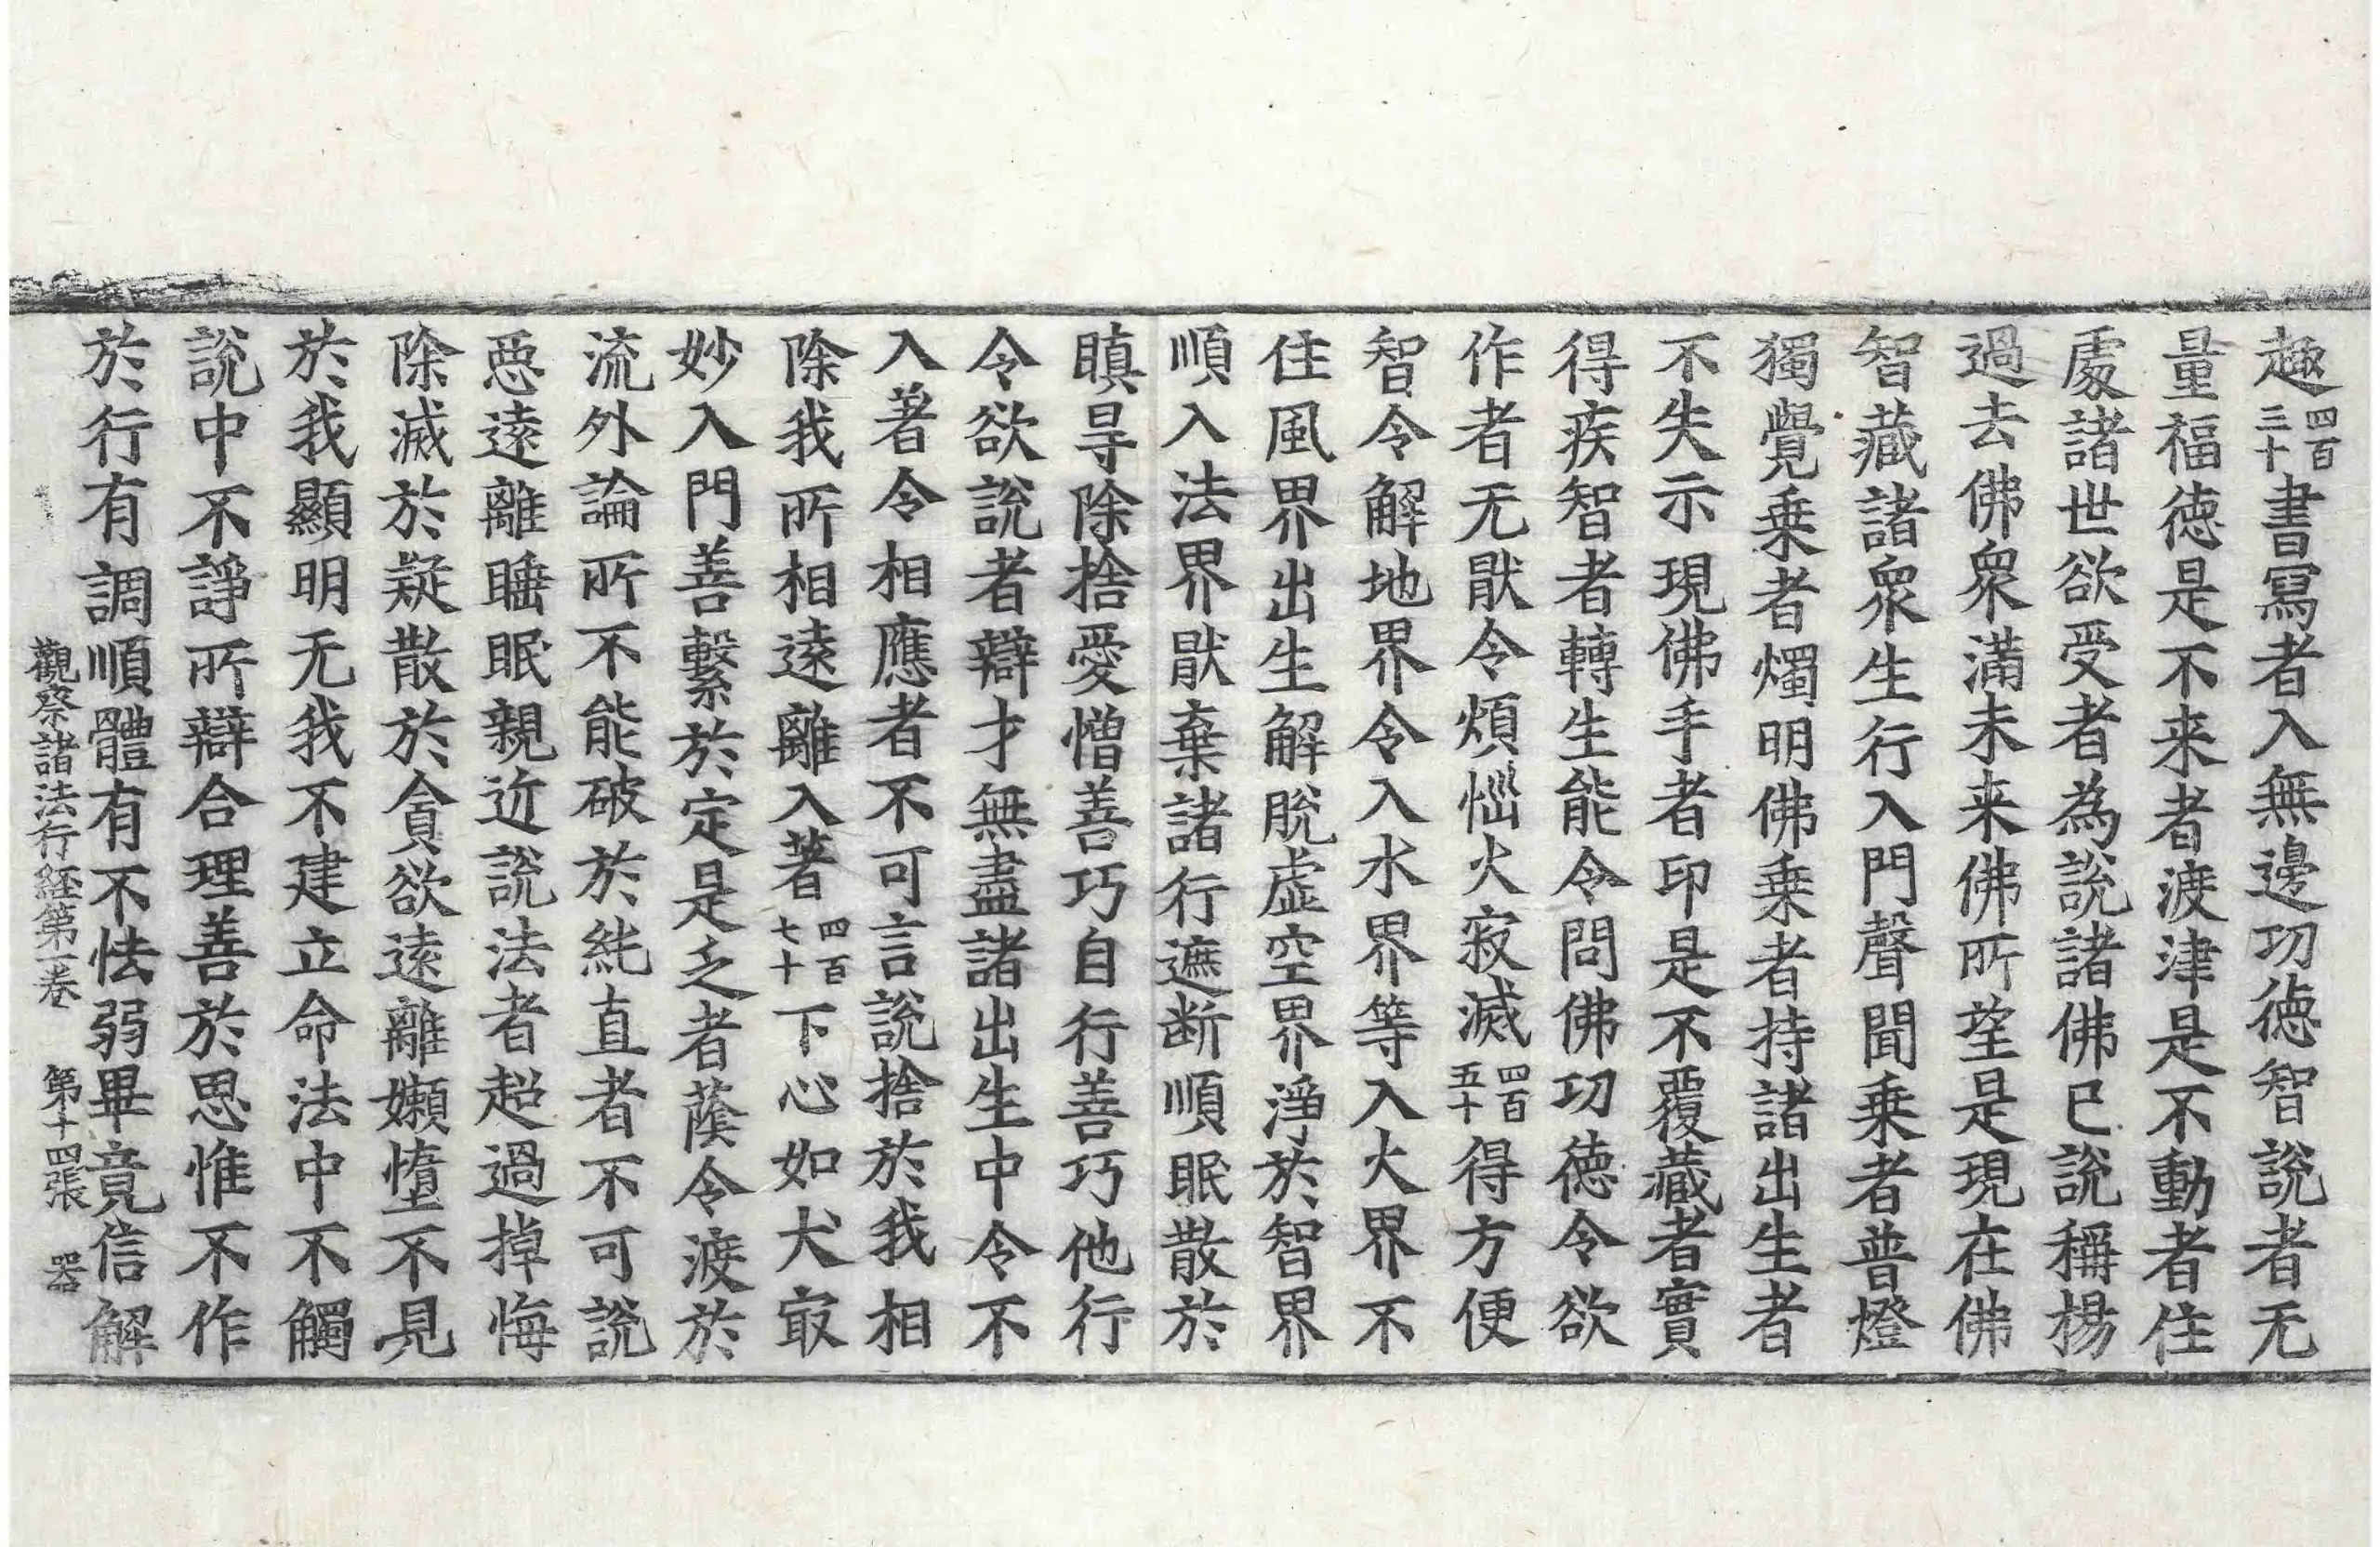 趣四百三十書寫者入無邊功德智說者无
量福德是不来者渡津是不動者住
處諸世欲受者為說諸佛已說稱揚
過去佛衆滿未来佛所望是現在佛
智藏諸衆生行入門聲聞乗者普燈
獨覺乗者燭明佛乗者持諸出生者
不失示現佛手者印是不覆藏者實
得疾智者轉生能令問佛功德令欲
作者无猒令煩惱火寂滅四百五十得方便
智令解地界令入水界等入火界不
住風界出生解脫虛空界淨於智界
順入法界猒棄諸行遮断順眠散於
瞋㝵除捨愛憎善巧自行善巧他行
令欲說者辯才無盡諸出生中令不
入著令相應者不可言說捨於我相
除我所相遠離入著四百七十下心如犬㝡
妙入門善繫於定是乏者蔭令渡於
流外論所不能破於純直者不可說
惡遠離睡眠親近說法者超過掉悔
除滅於疑散於貪欲遠離嬾惰不見
於我顯明无我不建立命法中不觸
說中不諍所辯合理善於思惟不作
於行有調順體有不怯弱畢竟信解
觀察諸法行経第一卷 第十四張 器